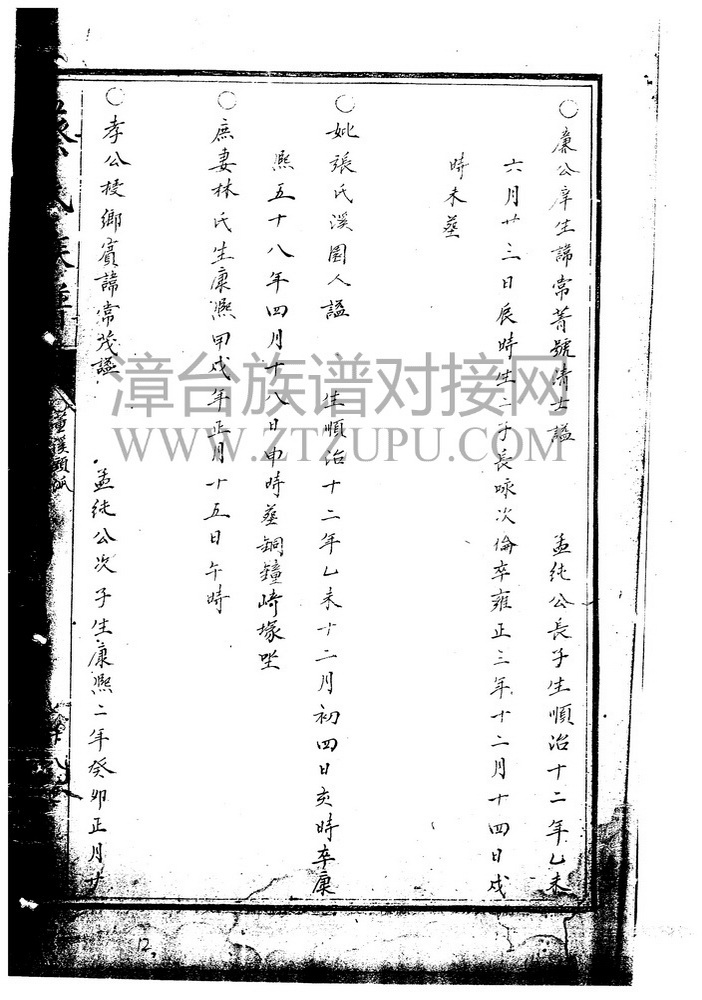 ○廉公庠生諱常菁號清士謚 孟純公長子生順治十二年乙未
六月廿三日辰時生二子長咏次倫卒雍正三年十二月十四日戌
時未塟
○妣張氏溪園人謚 生順治十二年乙未十二月初四日亥時卒康
熙五十八年四月十八日申時塟銅鐘崎塚坐
○庶妻林氏生康熙甲戌年正月十五日午時
○孝公授鄉賓諱常茂謚 孟純公次子生康熙二年癸卯正月廿
蔡氏族譜
漳台族谱对接网
WWW.ZTZUPU.COM
12